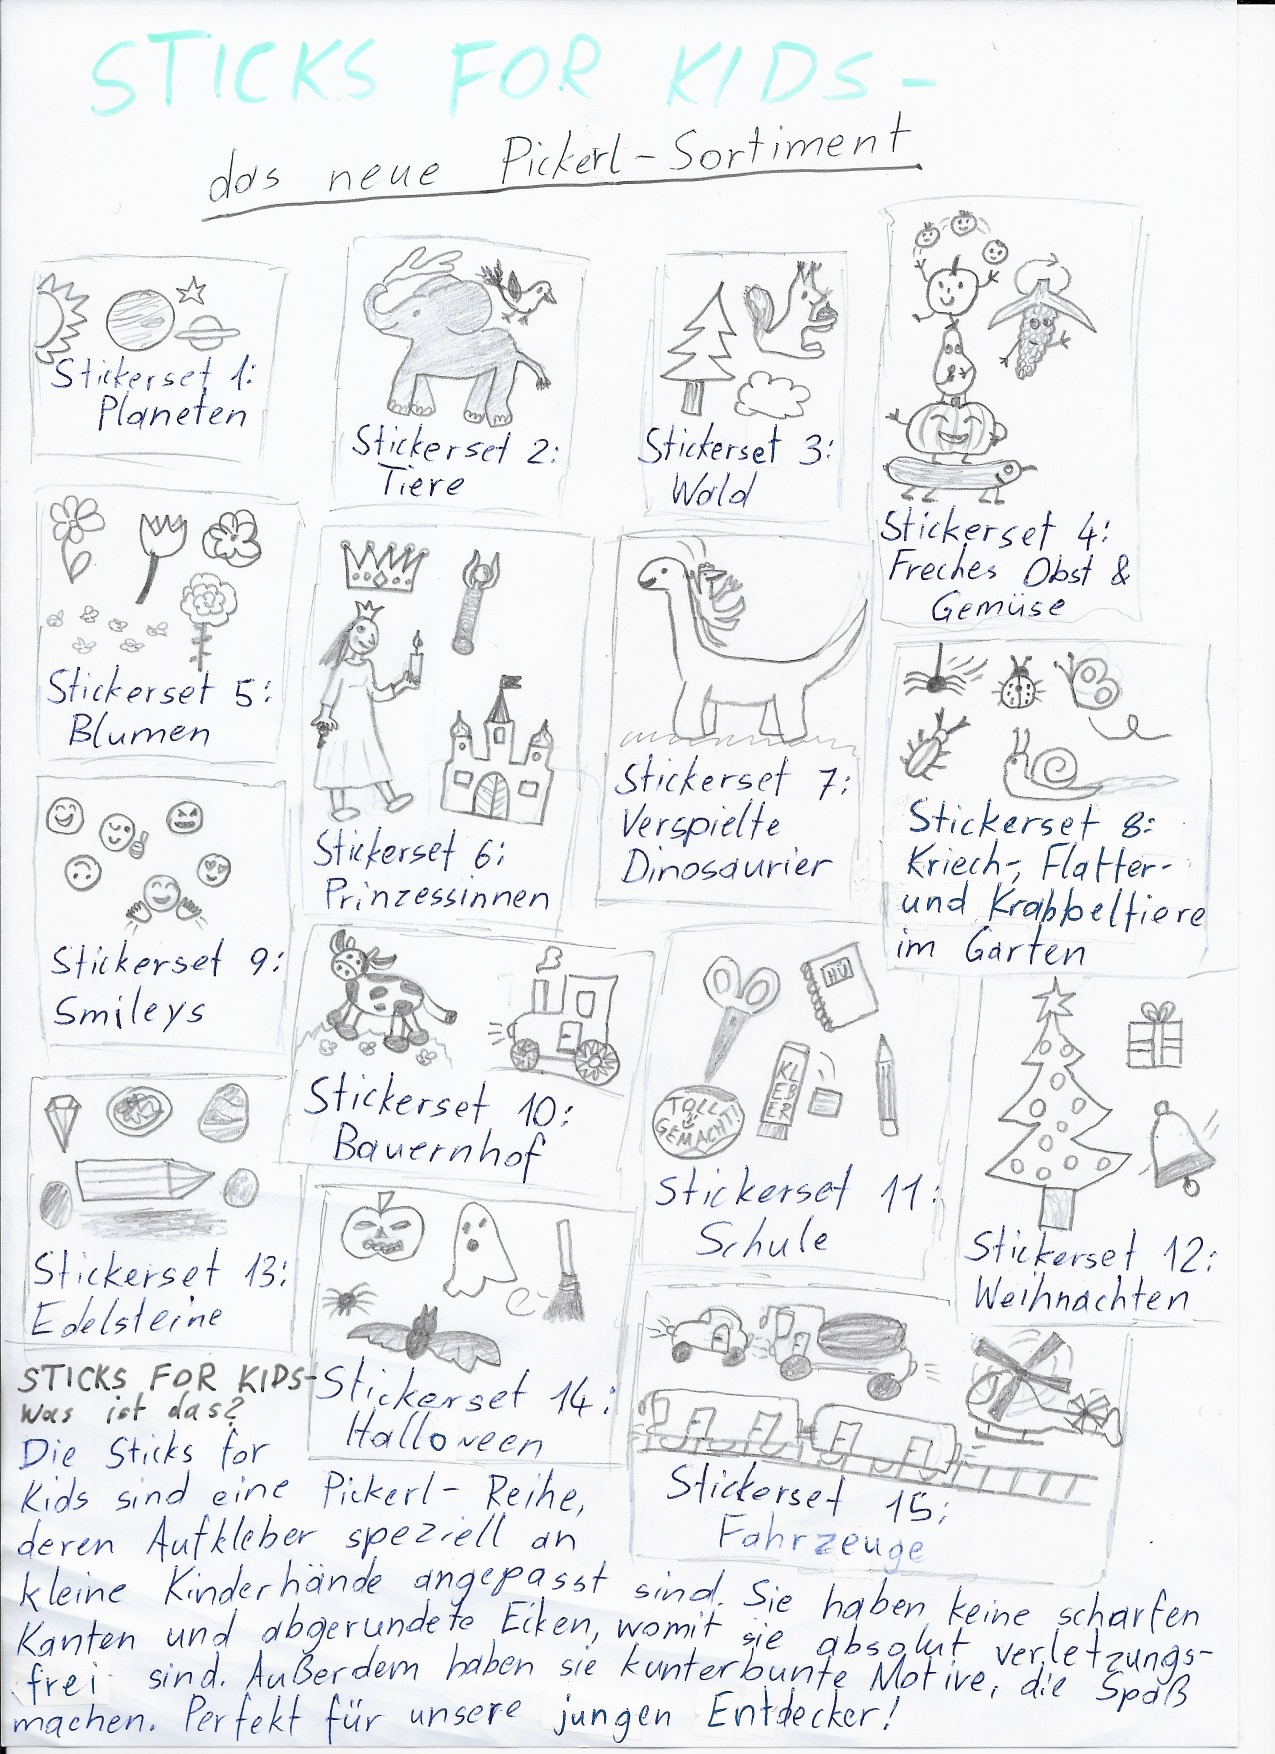 STICKS FOR KIDS -
das neue Pickerl-Sortiment
Stickerset 1:
Planeten
Stickerset 2:
Tiere
Stickerset 3:
Wald
Stickerset 4:
Freches Obst &
Gemüse
Stickerset 5:
Blumen
Stickerset 6:
Prinzessinnen
Stickerset 7:
Verspielte
Dinosaurier
Stickerset 8:
Kriech-, Flatter-
und Krabbeltiere
im Garten
Stickerset 9:
Smileys
Stickerset 10:
Bauernhof
HÜ
KLEBER
TOLL
GEMACHT!
Stickerset 11:
Schule
Stickerset 12:
Weihnachten
Stickerset 13:
Edelsteine
Stickerset 14:
Halloween
Stickerset 15:
Fahrzeuge
STICKS FOR KIDS-
Was ist das?
Die Sticks for
Kids sind eine Pickerl-Reihe,
deren Aufkleber speziell an
kleine Kinderhände angepasst sind. Sie haben keine scharfen
Kanten und abgerundete Ecken, womit sie absolut verletzungs-
frei sind. Außerdem haben sie kunterbunte Motive, die Spaß
machen. Perfekt für unsere jungen Entdecker!